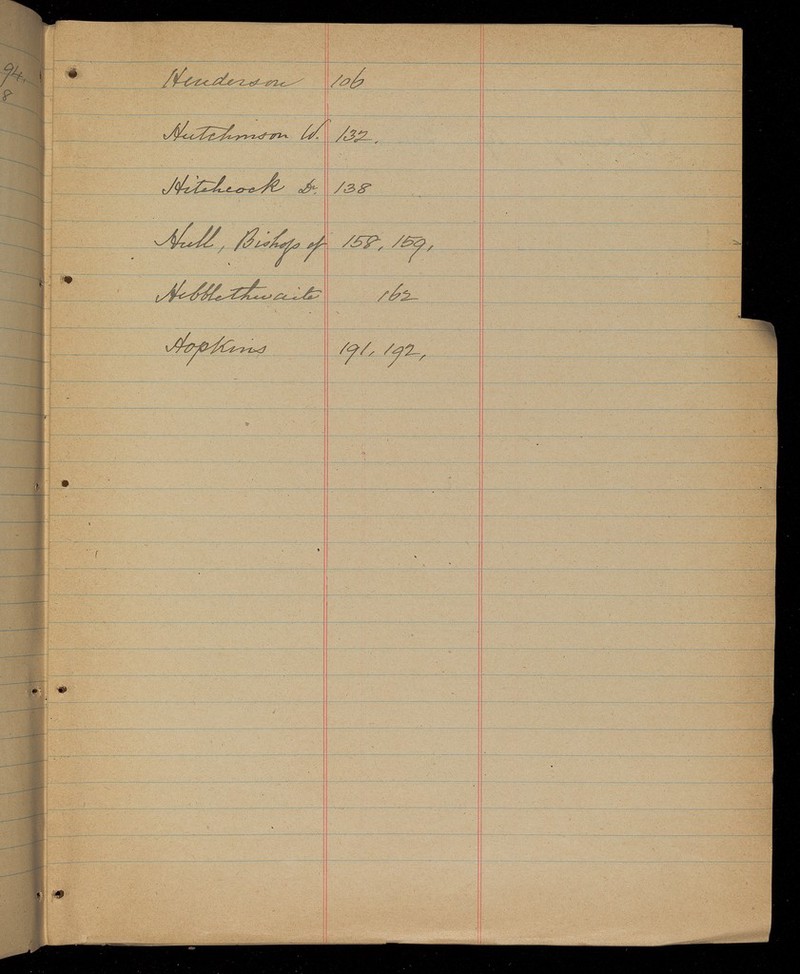 94.
8
Henderson 106
Hutchinson W. 132.
Hitchcock Dr. 138
Hull, Bishop of 158, 159,
Hebblethwaite 162
Hopkins 191, 192,